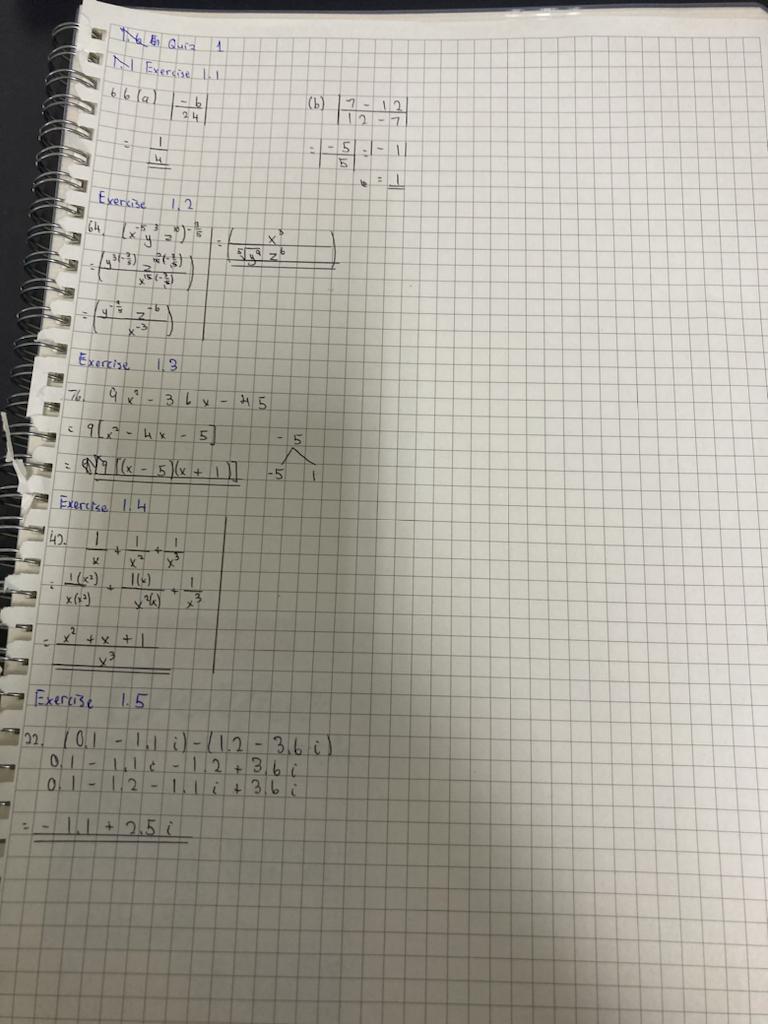 Quiz 1
Exercise 1.1
66(a) |-6/24|
= 1/4
(b) |7 - 12 / 12 - 7|
= |-5/5| = |-1|
= 1
Exercise 1.2
64. (x^-5 y^3 z^10)^-3/5
= (y^3(-3/5) z^10(-3/5) / x^(-3/5))
= (y^-9/5 z^-6 / x^-3)
= (x^3 / ⁵√y^9 z^6)
Exercise 1.3
76. 9x² - 36x - 45
= 9[x² - 4x - 5]
= 9[(x - 5)(x + 1)]
-5
-5 1
Exercise 1.4
1/x + 1/x² + 1/x³
= 1(x²)/x(x²) + 1(x)/x²(x) + 1/x³
= x² + x + 1 / x³
Exercise 1.5
22. (0.1 - 1.1i) - (1.2 - 3.6i)
0.1 - 1.1i - 1.2 + 3.6i
0.1 - 1.2 - 1.1i + 3.6i
= -1.1 + 2.5i